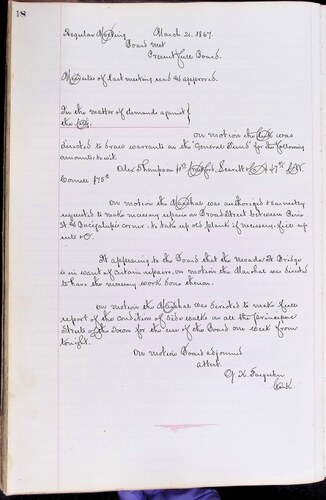 18
Regular Meeting March 21. 1867.
Board met
Present full Board.
Minutes of last meeting read and approved.
In the matter of demands against
the City.
On motion the Clerk was
directed to draw warrants on the General Fund for the following
amounts to wit
Alex Thompson
Cornell
On motion the Marshal was authorized &
requested to make necessary repairs on Broad Street between Pine
St and corner. to take up old plank if necessary. fill up
ruts &c.
It appearing to the Board that the Nevada St. Bridge
is in want of certain repairs, on motion the Marshal was directed
to have the necessary work done thereon.
On motion the Marshal was directed to make full
report of the condition of side walks on all the principal
Streets of the Town for the use of the Board one week from
tonight.
On motion Board adjourned
attest.
Clerk.